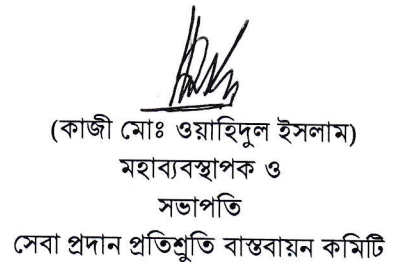 (কাজী মোঃ ওয়াহিদুল ইসলাম)
মহাব্যবস্থাপক ও
সভাপতি
সেবা প্রদান প্রতিশ্রুতি বাস্তবায়ন কমিটি